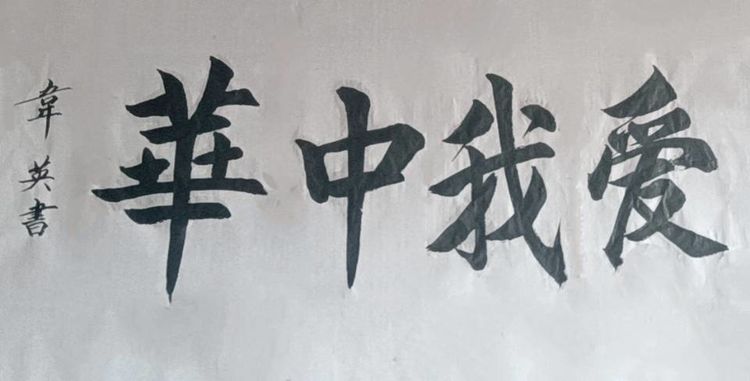 爱我中華
韋英書